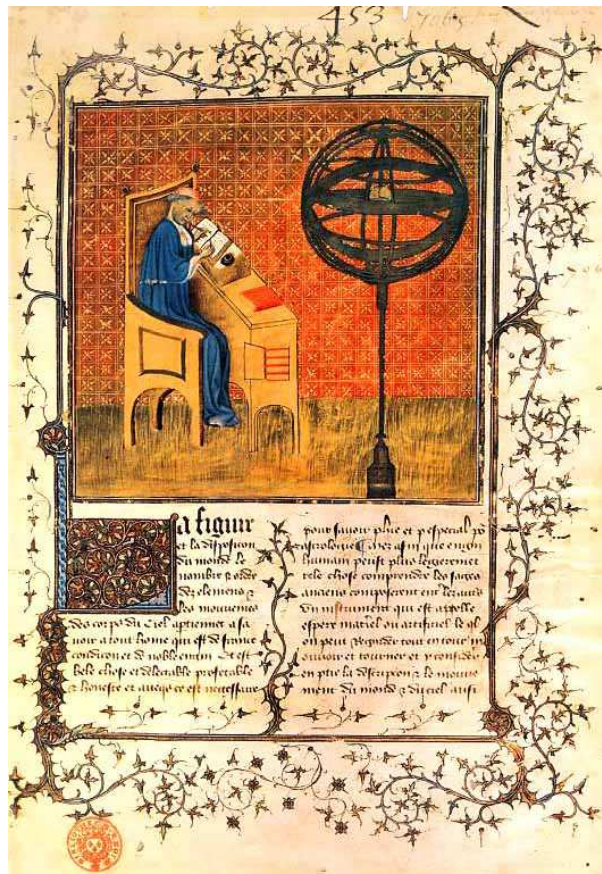 453
7065
La figure
et la disposicion
du monde le
nombre & ordre
des elemens &
les mouvemens
des corps du ciel aptienent a sa
voir a tout home qui est de france
condicion et de noble engin Et est
bele chose et delectable profetable
& honeste et avecqs ce est necessaire
pour savoir phie et p especial po
astrologie
humain peust plus legierement
tele chose comprendre les sages
anciens composerent
un instrument qui est appelle
espere materiel ou artificiel
on peut regarder tout entour
mouvoir et tourner et
en ptie la discripcion & le mouve
ment du monde & du ciel aussi